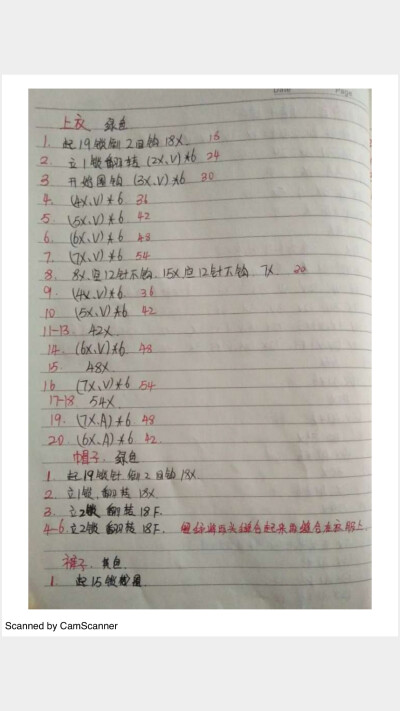 Date Page
上衣 绿色
1. 起19锁倒2目钩18X 18
2. 立1锁翻转 (2X,V)*6 24
3 开始圈钩 (3X,V)*6 30
4. (4X,V)*6 36
5. (5X,V)*6 42
6. (6X,V)*6 48
7. (7X,V)*6 54
8. 8X,空12针不钩,15X,空12针不钩,7X 30
9. (4X,V)*6 36
10 (5X,V)*6 42
11-13. 42X
14. (6X,V)*6 48
15. 48X
16 (7X,V)*6 54
17-18 54X
19. (7X,A)*6 48
20. (6X,A)*6 42
帽子. 绿色
1. 起19锁针倒2目钩18X
2. 立1锁,翻转18X
3. 立2锁 翻转18F.
4-6 立2锁翻转18F.
裤子. 黄色
1. 起15锁
Scanned by CamScanner